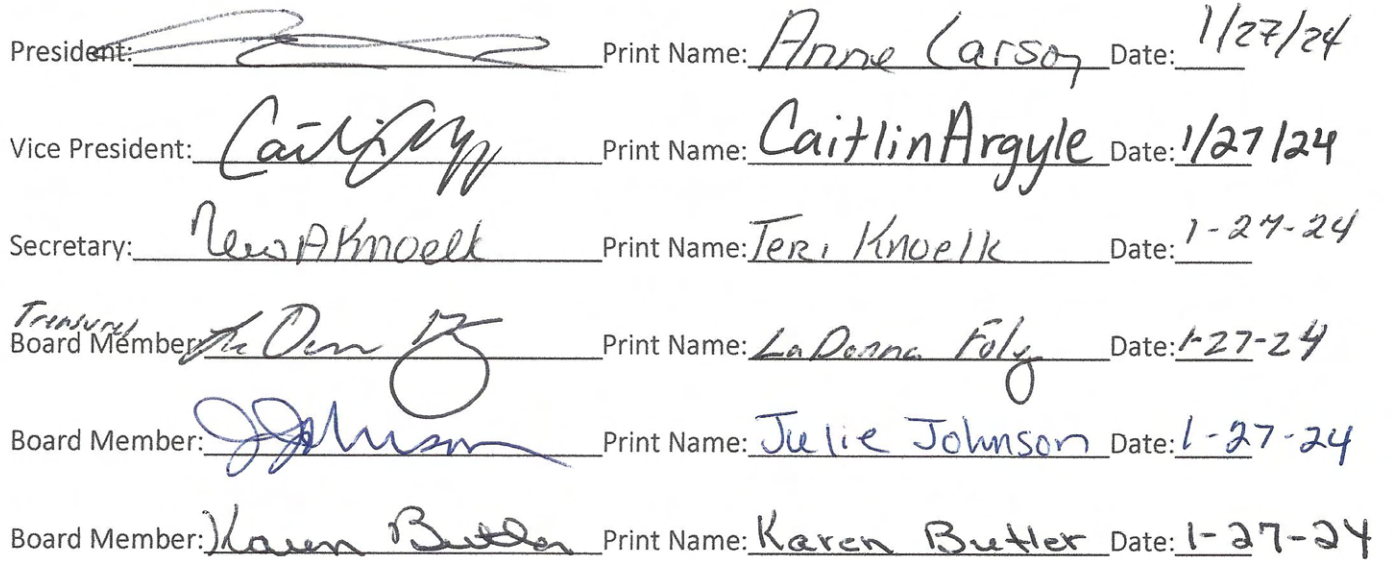 President: Print Name: Anne Carson Date: 1/27/24
Vice President: Print Name: Caitlin Argyle Date: 1/27/24
Secretary: Teri A Knoelk Print Name: Teri Knoelk Date: 1-27-24
Treasurer
Board Member: Print Name: LaDonna Foly Date: 1-27-24
Board Member: J Johnson Print Name: Julie Johnson Date: 1-27-24
Board Member: Karen Butler Print Name: Karen Butler Date: 1-27-24